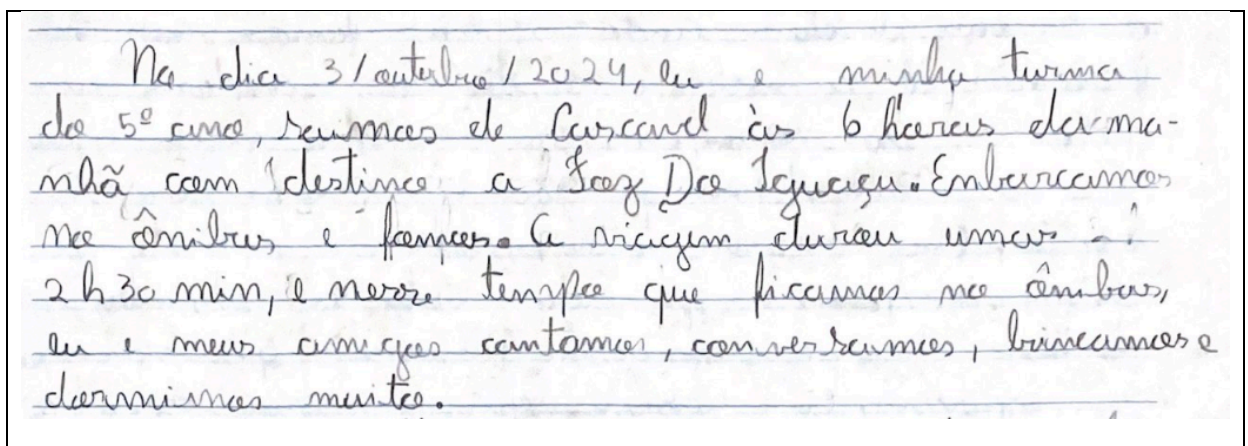 No dia 3/outubro/2024, eu e minha turma
do 5º ano, saimos de Cascavel às 6 horas da ma-
nhã com destino a Foz Do Iguaçu. Embarcamos
no ônibus e fomos. A viagem durou umas
2 h 30 min, e nesse tempo que ficamos no ônibus,
eu e meus amigos cantamos, conversamos, brincamos e
dormimos muito.